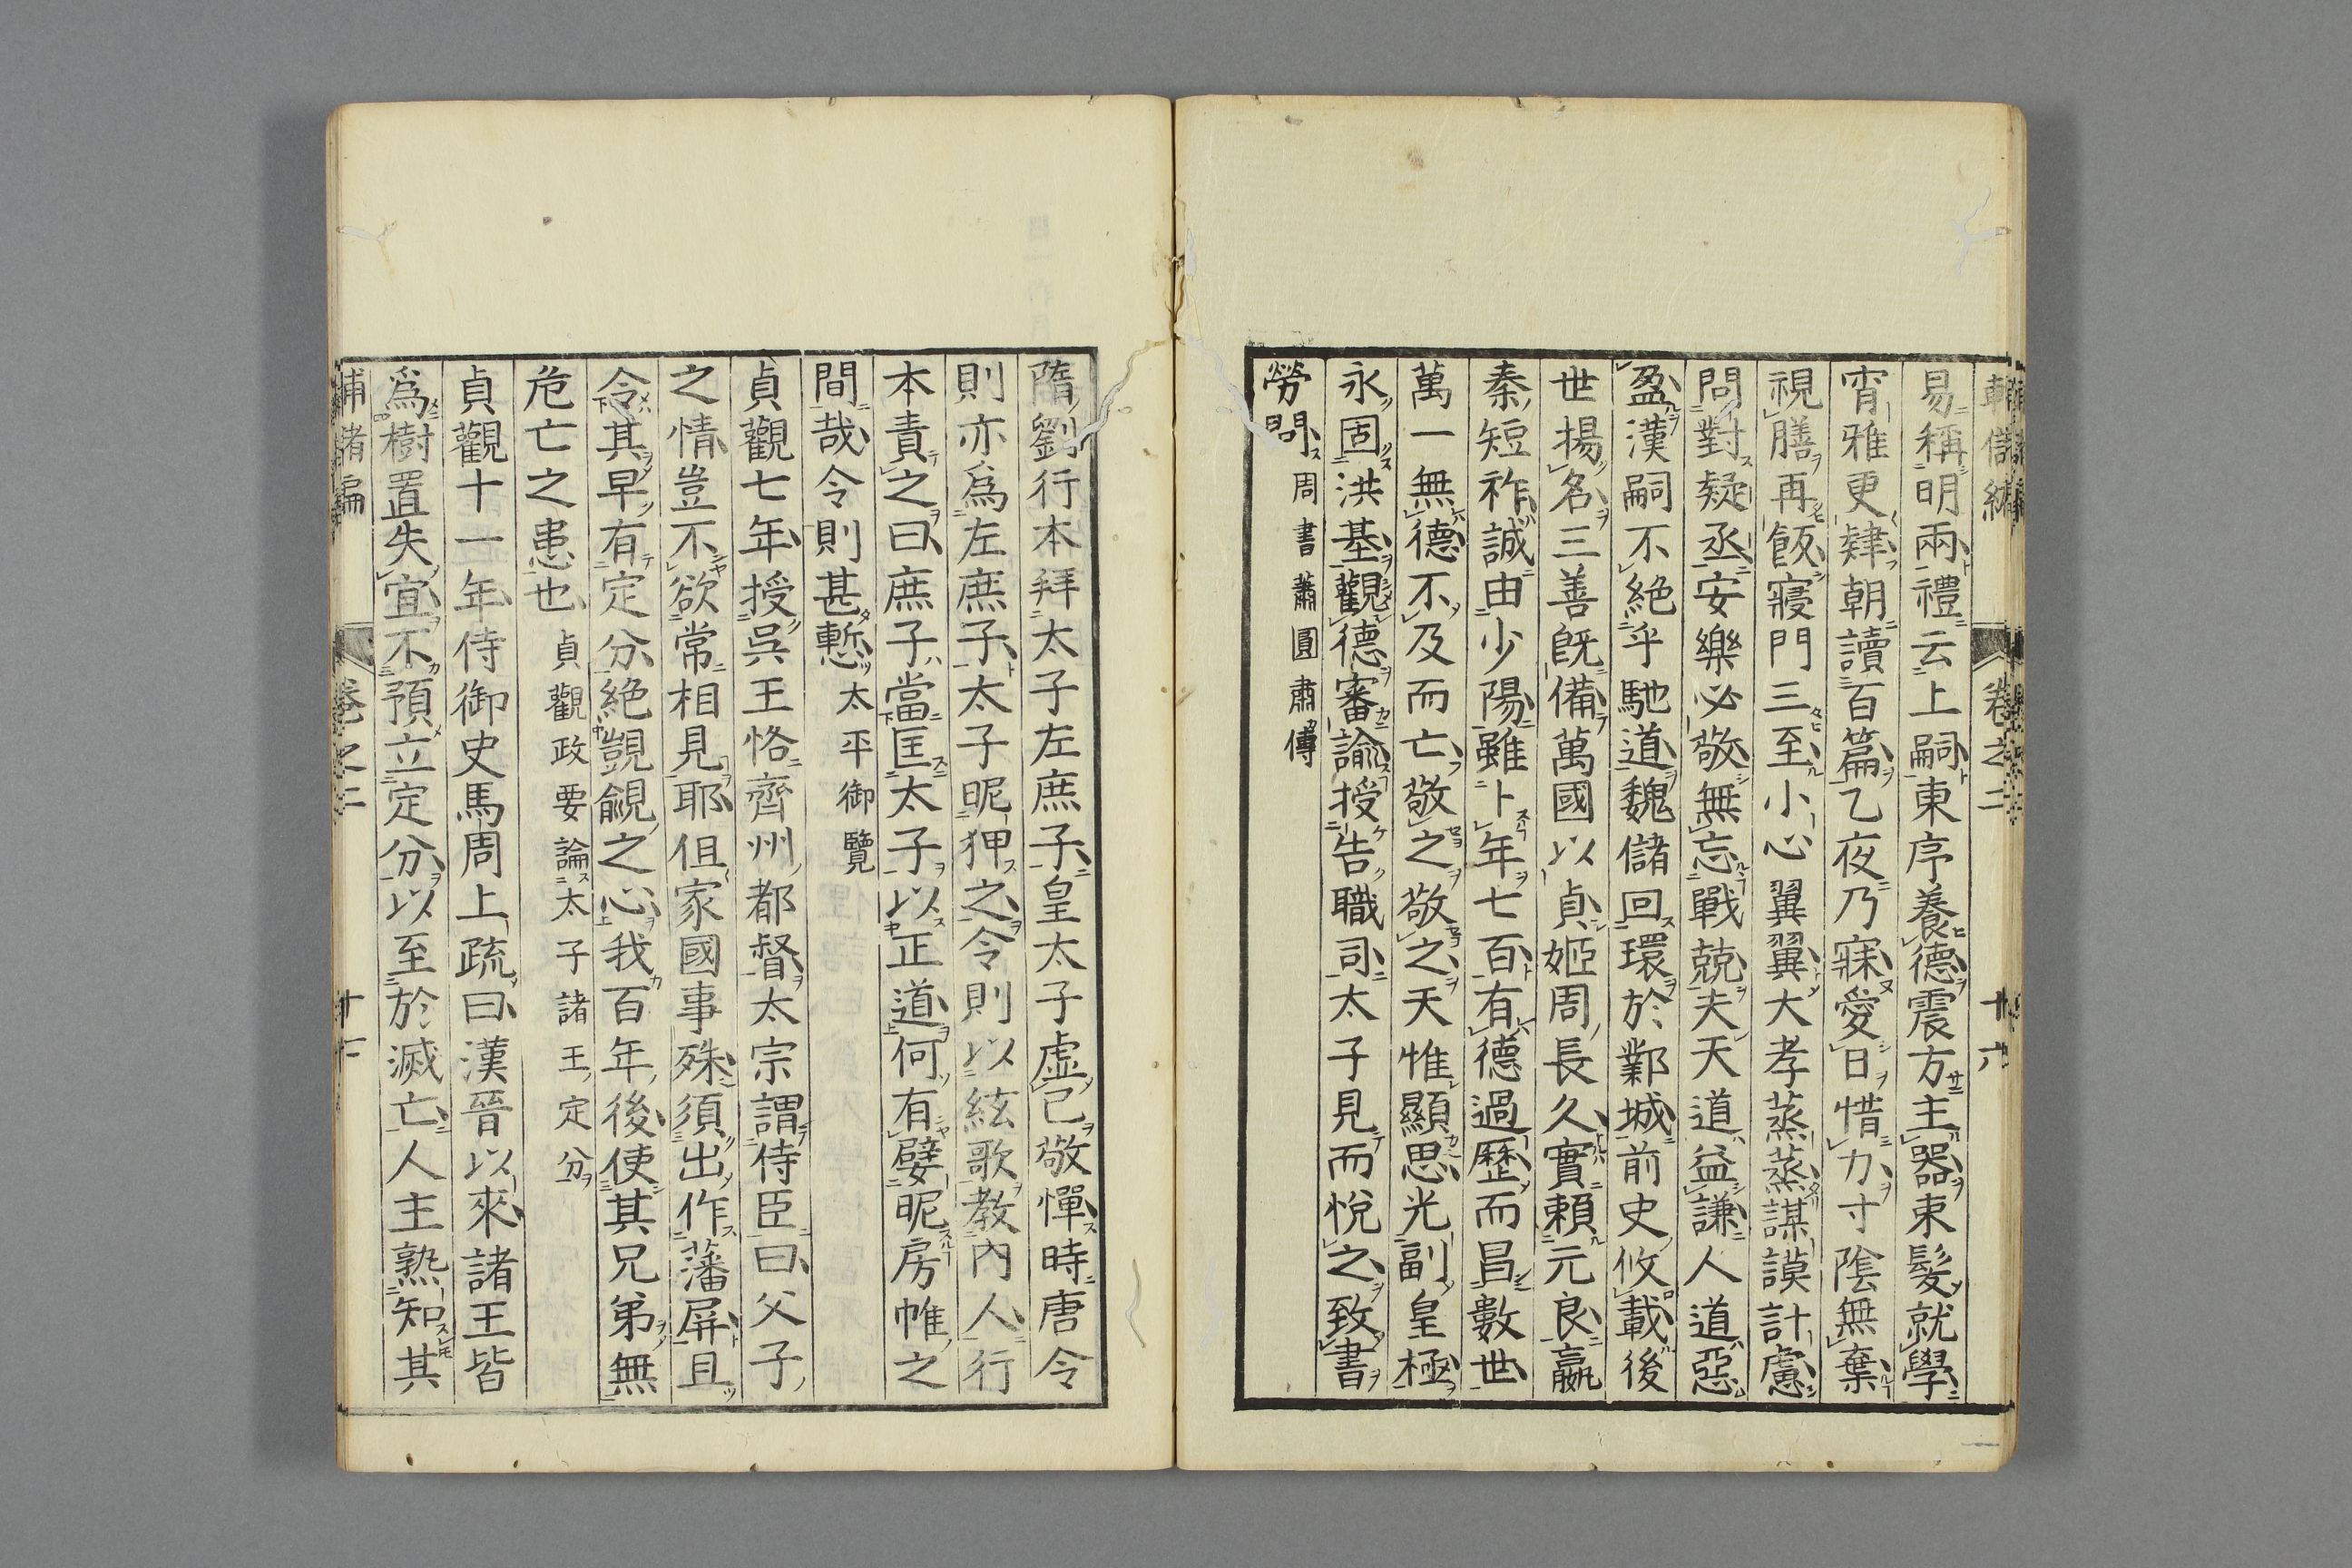 輔儲編 卷之二 廿六
易稱明兩禮云上嗣東序養德震方主器束髮就學
宵雅更肄朝讀百篇乙夜乃寐愛日惜力寸陰無棄
視膳再飯寢門三至小心翼翼大孝蒸蒸謀謨計慮
問對疑丞安樂必敬無忘戰兢夫天道益謙人道惡
盈漢嗣不絕乎馳道魏儲回環於鄴城前史攸載後
世揚名三善旣備萬國以貞姬周長久實賴元良嬴
秦短祚誠由少陽雖卜年七百有德過歷而昌數世
萬一無德不及而亡敬之敬之天惟顯思光副皇極
永固洪基觀德審諭授告職司太子見而悅之致書
勞問周書蕭圓肅傳
隋劉行本拜太子左庶子皇太子虛已敬憚時唐令
則亦爲左庶子太子昵狎之令則以絃歌教內人行
本責之曰庶子當匡太子以正道何有嬖昵房帷之
間哉令則甚慙太平御覽
貞觀七年授吳王恪齊州都督太宗謂侍臣曰父子
之情豈不欲常相見耶但家國事殊須出作藩屏且
令其早有定分絕覬覦之心我百年後使其兄弟無
危亡之患也貞觀政要論太子諸王定分
貞觀十一年侍御史馬周上疏曰漢晉以來諸王皆
爲樹置失宜不預立定分以至於滅亡人主熟知其
卷之二